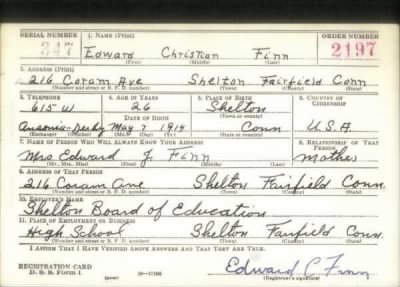 SERIAL NUMBER 1. NAME (Print) ORDER NUMBER
347 Edward Christian Finn 2197
(First) (Middle) (Last)
2. ADDRESS (Print)
216 Coram Ave Shelton Fairfield Conn
(Number and street or R. F. D. number) (Town) (County) (State)
3. TELEPHONE 4. AGE IN YEARS 5. PLACE OF BIRTH 6. COUNTRY OF CITIZENSHIP
615 W 26 Shelton
DATE OF BIRTH (Town or county)
Ansonia-Derby May 7 1914 Conn U.S.A.
(Exchange) (Number) (Mo.) (Day) (Yr.) (State or country)
7. NAME OF PERSON WHO WILL ALWAYS KNOW YOUR ADDRESS 8. RELATIONSHIP OF THAT PERSON
Mrs. Edward J Finn mother
(Mr., Mrs., Miss) (First) (Middle) (Last)
9. ADDRESS OF THAT PERSON
216 Coram Ave Shelton Fairfield Conn.
(Number and street or R. F. D. number) (Town) (County) (State)
10. EMPLOYER'S NAME
Shelton Board of Education
11. PLACE OF EMPLOYMENT OR BUSINESS
High School Shelton Fairfield Conn.
(Number and street or R. F. D. number) (Town) (County) (State)
I AFFIRM THAT I HAVE VERIFIED ABOVE ANSWERS AND THAT THEY ARE TRUE.
REGISTRATION CARD
D. S. S. FORM 1 (over) 16-17105 Edward C Finn